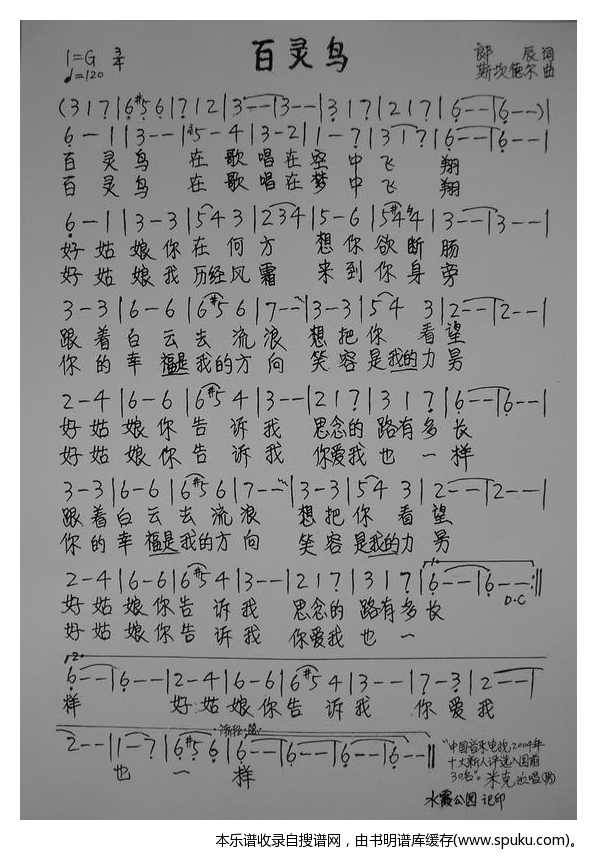 百灵鸟
1=G 3/4
♩=120
郎辰 词
斯坎德尔 曲
(3 1 7̣ | 6̣ #5̣ 6̣ | 7̣ 1 2 | 3 - - | 3 - - | 3 1 7̣ | 2 1 7̣ | 6̣ - - | 6̣ - -) |
6̣ - 1 | 3 - - | #5 - 4 | 3 - 2 | 1 - 7̣ | 3 1 7̣ | 6̣ - - | 6̣ - - |
百 灵 鸟 在 歌 唱 在 空 中 飞 翔
百 灵 鸟 在 歌 唱 在 梦 中 飞 翔
6̣ - 1 | 3 - 3 | 5 4 3 | 2 3 4 | 5 - 6 | 5 #4 4 | 3 - - | 3 - - |
好 姑 娘 你 在 何 方 想 你 欲 断 肠
好 姑 娘 我 历经 风 霜 来 到 你 身 旁
3 - 3 | 6 - 6 | 6 #5 6 | 7 - - | 3 - 3 | 5 4 3 | 2 - - | 2 - - |
跟 着 白 云 去 流 浪 想 把 你 看 望
你 的 幸 福是 我的 方 向 笑 容 是 我的 力 量
2 - 4 | 6 - 6 | 6 #5 4 | 3 - - | 2 1 7̣ | 3 1 7̣ | 6̣ - - | 6̣ - - |
好 姑 娘 你 告 诉 我 思念的 路有多 长
好 姑 娘 你 告 诉 我 你爱我 也 一 样
3 - 3 | 6 - 6 | 6 #5 6 | 7 - - | 3 - 3 | 5 4 3 | 2 - - | 2 - - |
跟 着 白 云 去 流 浪 想 把 你 看 望
你 的 幸 福是 我的 方 向 笑 容 是 我的 力 量
2 - 4 | 6 - 6 | 6 #5 4 | 3 - - | 2 1 7̣ | 3 1 7̣ | 1. 6̣ - - | 6̣ - - :||
D.C
好 姑 娘 你 告 诉 我 思念的 路有多 长
好 姑 娘 你 告 诉 我 你爱我 也 一
2. 6̣ - - | 6̣ - - | 2 - 4 | 6 - 6 | 6 #5 4 | 3 - - | 7̣ - 3 | 2 - - |
样 好 姑 娘 你 告 诉 我 你 爱 我
2 - - | 1 - 7̣ | 6̣ #5̣ 6̣ | 6̣ - - | 6̣ - - | 6̣ - - | 6̣ - - ||
也 一 样
2004年
米克 演唱
水霞公园 记印
本乐谱收录自搜谱网，由书明谱库缓存(www.spuku.com)。